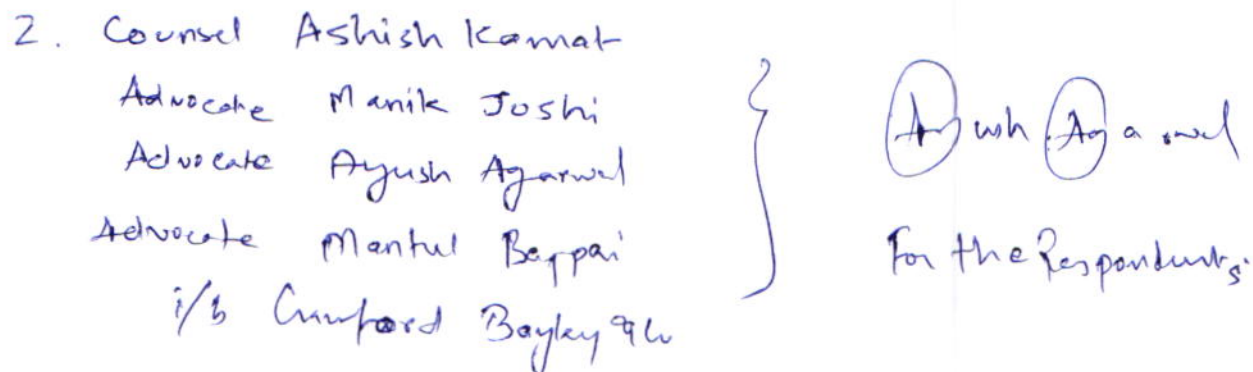 2. Counsel Ashish Kamat
Advocate Manik Joshi
Advocate Ayush Agarwal
Advocate Mantul Bajpai
i/b Crawford Bayley & Co
Ayush Agarwal
For the Respondents.